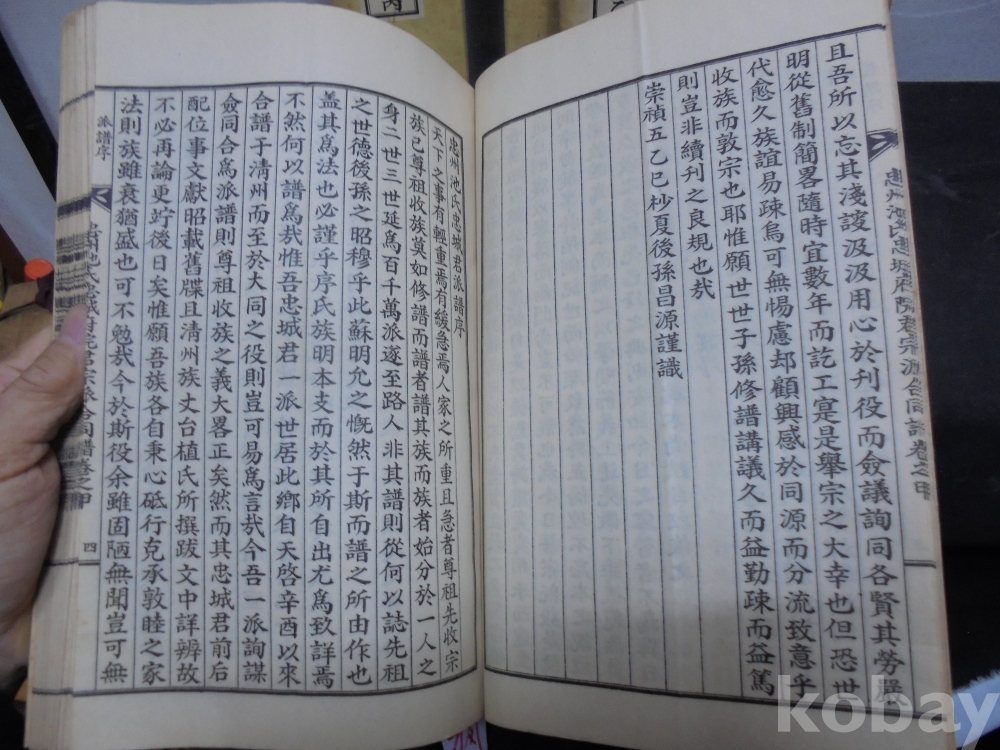 丙
忠州池氏忠城府院君宗派合同譜卷之甲
且吾所以忘其淺諓汲汲用心於刊役而僉議詢同各賢其勞嚴
明從舊制簡畧隨時宜數年而訖工寔是舉宗之大幸也但恐世
代愈久族誼易疎烏可無惕慮却顧興感於同源而分流致意乎
收族而敦宗也耶惟願世世子孫修譜講議久而益勤疎而益篤
則豈非續刊之良規也哉
崇禎五乙巳杪夏後孫昌源謹識
忠州池氏忠城君派譜序
天下之事有輕重焉有緩急焉人家之所重且急者尊祖先收宗
族已尊祖收族莫如修譜而譜者譜其族而族者始分於一人之
身二世三世延爲百千萬派逐至路人非其譜則從何以誌先祖
之世德後孫之昭穆乎此蘇明允之慨然于斯而譜之所由作也
盖其爲法也必謹乎序氏族明本支而於其所自出尤爲致詳焉
不然何以譜爲哉惟吾忠城君一派世居此鄉自天啓辛酉以來
合譜于淸州而至於大同之役則豈可易爲言哉今吾一派詢謀
僉同合爲派譜則尊祖收族之義大畧正矣然而其忠城君前后
配位事文獻昭載舊牒且淸州族丈台植氏所撰跋文中詳辨故
不必再論更竚後日矣惟願吾族各自秉心砥行克承敦睦之家
法則族雖衰猶盛也可不勉哉今於斯役余雖固陋無聞豈可無
派譜序
四
kobay